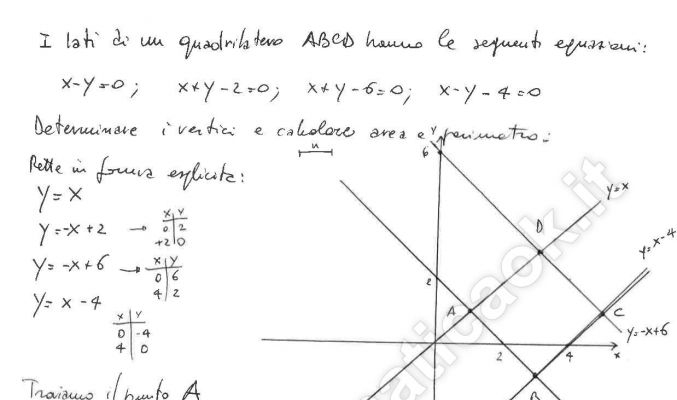 I lati di un quadrilatero ABCD hanno le seguenti equazioni:
x-y=0; x+y-2=0; x+y-6=0; x-y-4=0
Determinare i vertici e calcolare area e perimetro:
Rette in forma esplicita:
y=x
y=-x+2 → x y
0 2
+2 0
y=-x+6 → x y
0 6
4 2
y=x-4
x y
0 -4
4 0
Troviamo il punto A
u
y
6
2
A
D
C
B
2
4
x
y=x
y=x-4
y=-x+6
aticaok.it